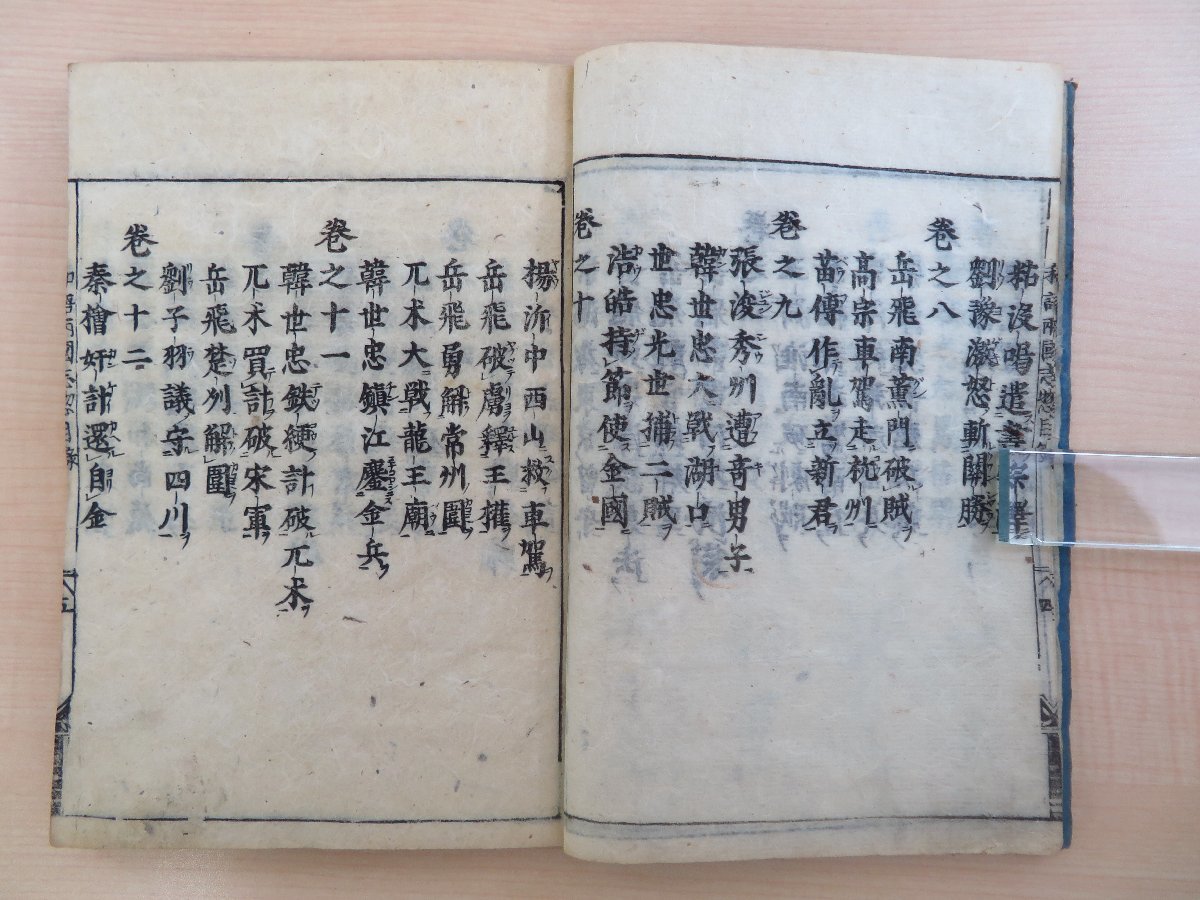 粘没喝遣書宗澤
劉豫激怒斬關勝
卷之八
岳飛南薫門破賊
高宗車駕走杭州
苗傳作亂立新君
卷之九
張浚秀州遭奇男子
韓世忠大戰湖口
世忠光世捕二賊
卷之十
浩皓持節使金國
楊沂中西山救車駕
岳飛破虜釋王權
岳飛勇解常州圍
兀朮大戰龍王廟
韓世忠鎮江鏖金兵
卷之十一
韓世忠鉄綆計破兀朮
兀朮買計破宋軍
岳飛楚州解圍
劉子羽議守四川
卷之十二
秦檜奸計還自金